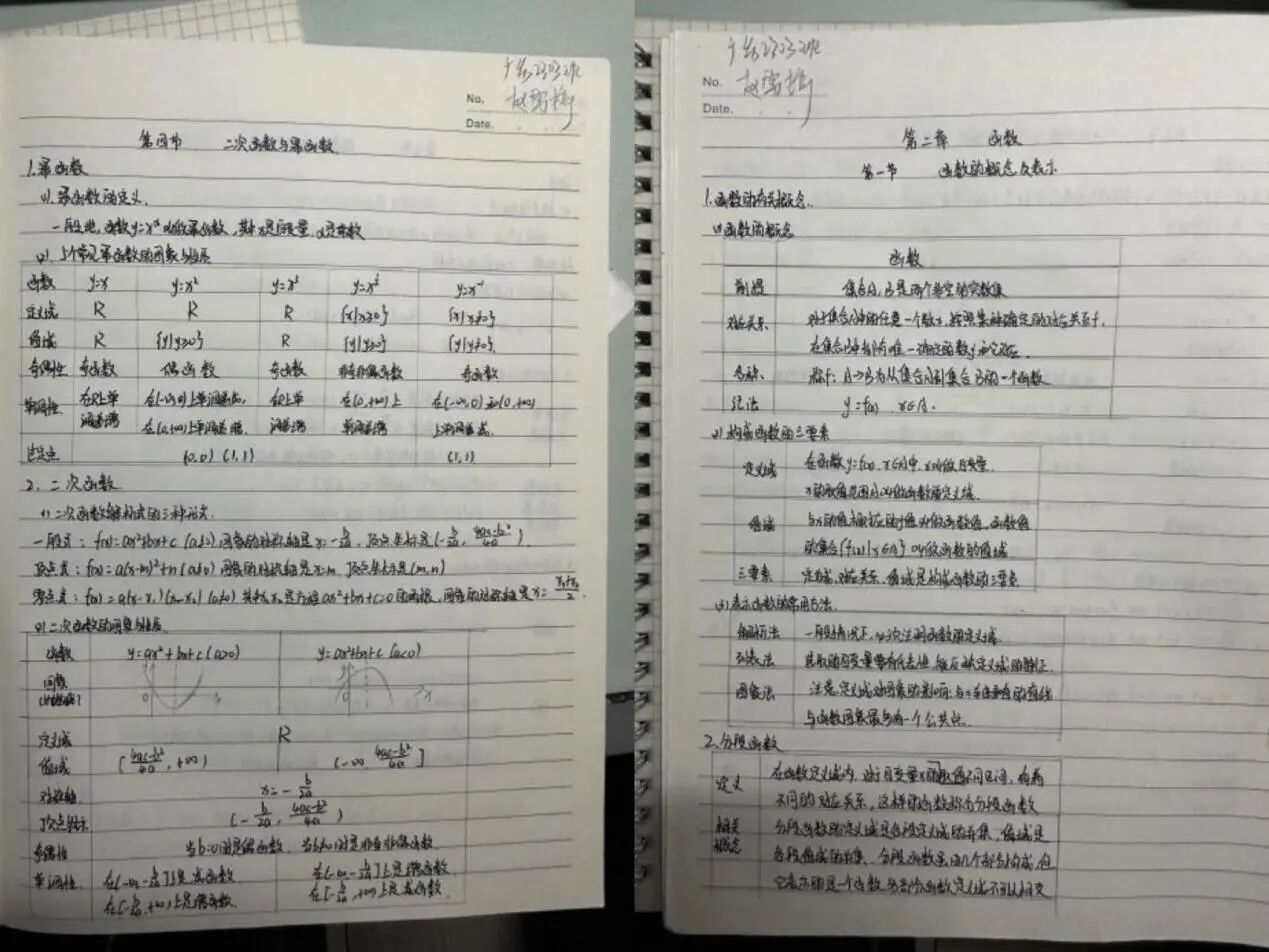 No.
Date.
第四节 二次函数与幂函数
1.幂函数
(1).幂函数的定义.
一般地,函数y=xᵅ叫做幂函数,其中x是自变量,α是常数
(2).5个常见幂函数的图象与性质
函数 y=x y=x² y=x³ y=x^½ y=x⁻¹
定义域 R R R {x|x≥0} {x|x≠0}
值域 R {y|y≥0} R {y|y≥0} {y|y≠0}.
奇偶性 奇函数 偶函数 奇函数 非奇非偶函数 奇函数
单调性. 在R上单 在(-∞,0)上单调递减, 在R上单 在(0,+∞)上 在(-∞,0)和(0,+∞)
调递增 在(0,+∞)上单调递增. 调递增 单调递增 上单调递减.
过定点 (0,0) (1,1) (1,1)
2. 二次函数
(1)二次函数解析式的三种形式.
一般式: f(x)=ax²+bx+c (a≠0),图象的对称轴是x=-b/2a, 顶点坐标是(-b/2a, 4ac-b²/4a)
顶点式: f(x)=a(x-m)²+n(a≠0) 图象的对称轴是x=m 顶点坐标是(m,n)
零点式: f(x)=a(x-x₁)(x-x₂)(a≠0) 其中x₁,x₂是方程ax²+bx+c=0的两根, 图象的对称轴是x=x₁+x₂/2
(2)二次函数的图象与性质
函数 y=ax²+bx+c(a>0) y=ax²+bx+c(a<0)
图象
0 x 0 x
定义域 R
值域 [4ac-b²/4a, +∞) (-∞, 4ac-b²/4a]
对称轴 x=-b/2a
顶点坐标 (-b/2a, 4ac-b²/4a)
奇偶性 当b=0时是偶函数, 当b≠0时是非奇非偶函数
单调性. 在(-∞,-b/2a]上是减函数 在(-∞,-b/2a]上是增函数
在[-b/2a,+∞)上是增函数 在[-b/2a,+∞)上是减函数
No.
Date.
第二章 函数
第一节 函数的概念及表示
1.函数的有关概念.
(1)函数的概念
函数
前提 集合A,B是两个非空的实数集
对应关系. 对于集合A中的任意一个数x,按照某种确定的对应关系f,
在集合B中都有唯一确定的数y和它对应.
名称. 称f: A→B为从集合A到集合B的一个函数
记法 y=f(x) ,x∈A.
(2)构成函数的三要素
定义域 在函数y=f(x),x∈A中,x叫做自变量.
x的取值范围A叫做函数的定义域.
值域 与x的值相对应的y值叫做函数值,函数值
的集合{f(x)|x∈A}叫做函数的值域
三要素 定义域,对应关系,值域是构成函数的三要素
(3)表示函数的常用方法.
解析法 一般情况下,必须注明函数的定义域.
列表法 选取的自变量要有代表性,能反映定义域的特征.
图象法 注意定义域对图象的影响:与x轴垂直的直线
与函数图象最多有一个公共点.
2.分段函数
定义 在函数定义域内,对于自变量x的取值不同区间,有着
不同的对应关系,这样的函数称为分段函数
相关 分段函数的定义域是各段定义域的并集,值域是
概念 各段值域的并集. 分段函数虽由几个部分构成,但
它表示的是一个函数,各部分函数定义域不可以相交